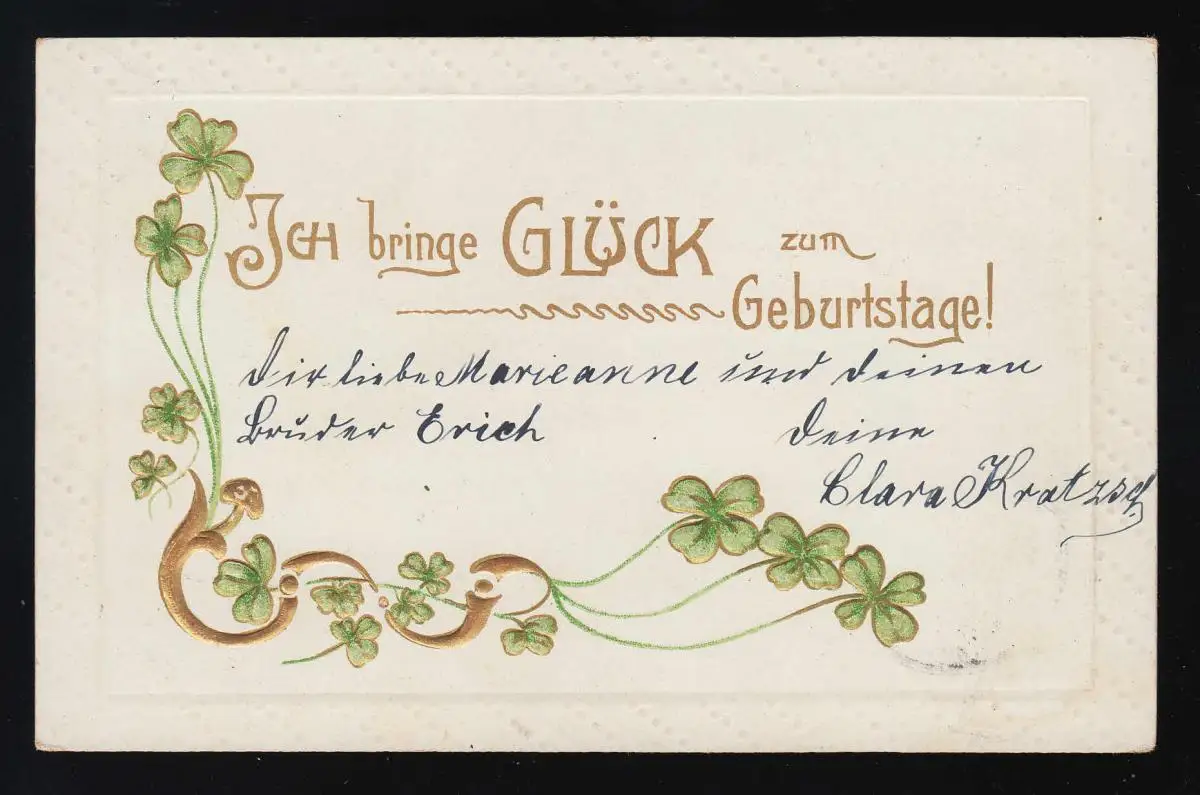 Ich bringe GLÜCK zum
Geburtstage!
Dir liebe Marieanne und deinen
Bruder Erich Deine
Clara Kratzsch